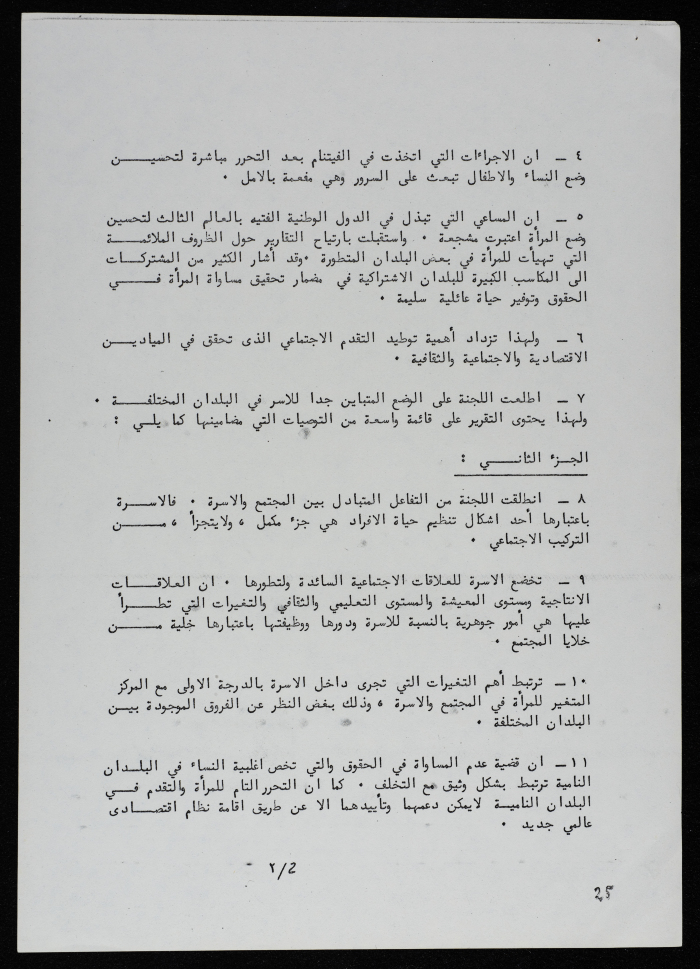 ٤ ــ ان الاجراءات التي اتخذت في الفيتنام بعد التحرر مباشرة لتحسيـــن
وضع النساء والاطفال تبعث على السرور وهي مفعمة بالامل ٠
٥ ــ ان المساعي التي تبذل في الدول الوطنية الفتيه بالعالم الثالث لتحسين
وضع المرأة اعتبرت مشجعة ٠ واستقبلت بارتياح التقارير حول الظروف الملائمـــة
التي تهيأت للمرأة في بعض البلدان المتطورة ٠وقد أشار الكثير من المشتركــات
الى المكاسب الكبيرة للبلدان الاشتراكية في مضمار تحقيق مساواة المرأة فـــي
الحقوق وتوفير حياة عائلية سليمة ٠
٦ ــ ولهذا تزداد أهمية توطيد التقدم الاجتماعي الذى تحقق في الميادــن
الاقتصادية والاجتماعية والثقافية ٠
٧ ــ اطلعت اللجنة على الوضع المتباين جدا للاسر في البلدان المختلفـــة ٠
ولهذا يحتوى التقرير على قائمة واسعة من التوصيات التي مضامينها كما يلــي :
الجــزء الثانـــي :
٨ ــ انطلقت اللجنة من التفاعل المتبادل بين المجتمع والاسرة ٠ فالاســرة
باعتبارها أحد اشكال تنظيم حياة الافراد هي جزء مكمل ، ولايتجزأ ، مـــن
التركيب الاجتماعي ٠
٩ ــ تخضع الاسرة للعلاقات الاجتماعية السائدة ولتطورها ٠ ان العلاقـــات
الانتاجية ومستوى المعيشة والمستوى التعليمي والثقافي والتغيرات التي تطـــرأ
عليها هي أمور جوهرية بالنسبة للاسرة ودورها ووظيفتها باعتبارها خلية مـــن
خلايا المجتمع ٠
١٠ ــ ترتبط أهم التغيرات التي تجرى داخل الاسرة بالدرجة الاولى مع المركز
المتغير للمرأة في المجتمع والاسرة ، وذلك بغض النظر عن الفروق الموجودة بيــن
البلدان المختلفة ٠
١١ــ ان قضية عدم المساواة في الحقوق والتي تخص اغلبية النساء في البلــدان
النامية ترتبط بشكل وثيق مع التخلف ٠ كما ان التحرر التام للمرأة والتقدم فـــي
البلدان الناميــة لايمكن دعمهما وتأييدهما الا عن طريق اقامة نظام اقتصــادى
عالمي جديد ٠
٢/2
25